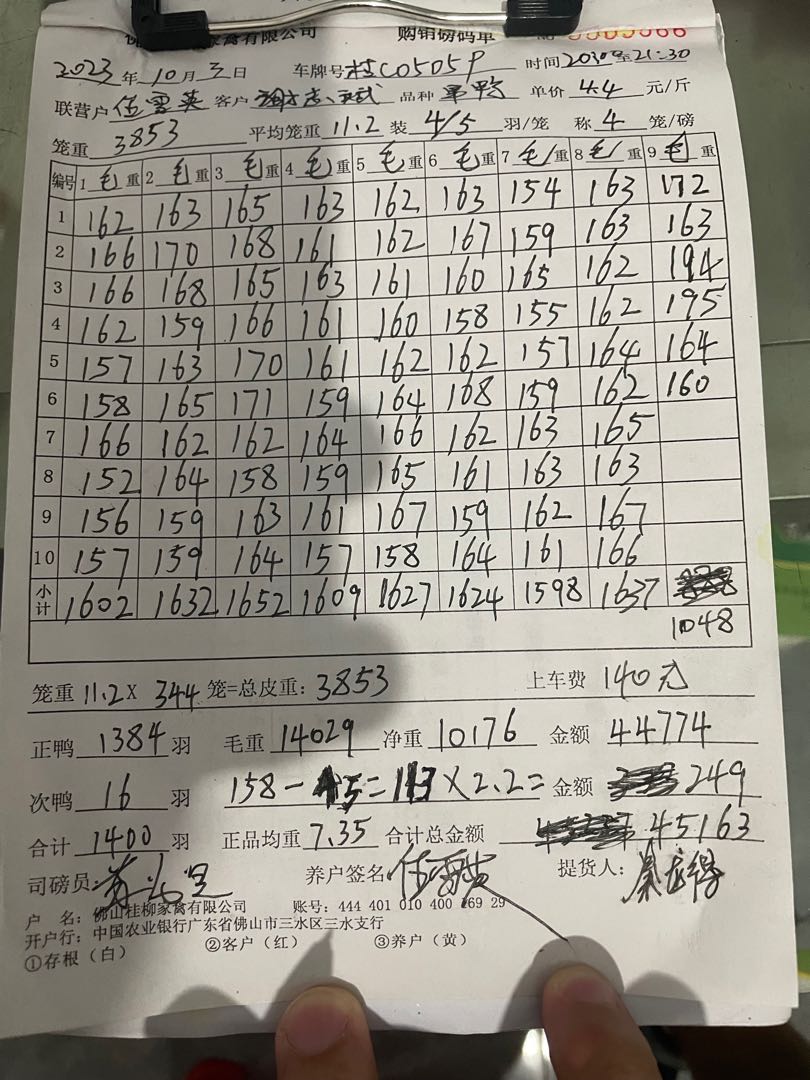 佛山桂柳家禽有限公司 购销磅码单
2023年10月3日 车牌号 桂C0505P 时间 20:30至21:30
联营户 伍雪英 客户 品种 单价 4.4 元/斤
笼重 3853 平均笼重 11.2 装 4/5 羽/笼 称 4 笼/磅
编号 1 毛重 2 毛重 3 毛重 4 毛重 5 毛重 6 毛重 7 毛重 8 毛重 9 毛重
1 162 163 165 163 162 163 154 163 172
2 166 170 168 161 162 167 159 163 163
3 166 168 165 163 161 160 165 162 194
4 162 159 166 161 160 158 155 162 195
5 157 163 170 161 162 162 157 164 164
6 158 165 171 159 164 168 159 162 160
7 166 162 162 164 166 162 163 165
8 152 164 158 159 165 161 163 163
9 156 159 163 161 167 159 162 167
10 157 159 164 157 158 164 161 166
小计 1602 1632 1652 1609 1627 1624 1598 1637
1048
笼重 11.2 X 344 笼=总皮重: 3853 上车费 140元
正鸭 1384 羽 毛重 14029 净重 10176 金额 44774
次鸭 16 羽 158-45=113×2.2= 金额 249
合计 1400 羽 正品均重 7.35 合计总金额 45163
司磅员: 养户签名 提货人:
户 名: 佛山桂柳家禽有限公司 账号: 444 401 010 400 269 29
开户行: 中国农业银行广东省佛山市三水区三水支行
①存根（白） ②客户（红） ③养户（黄）